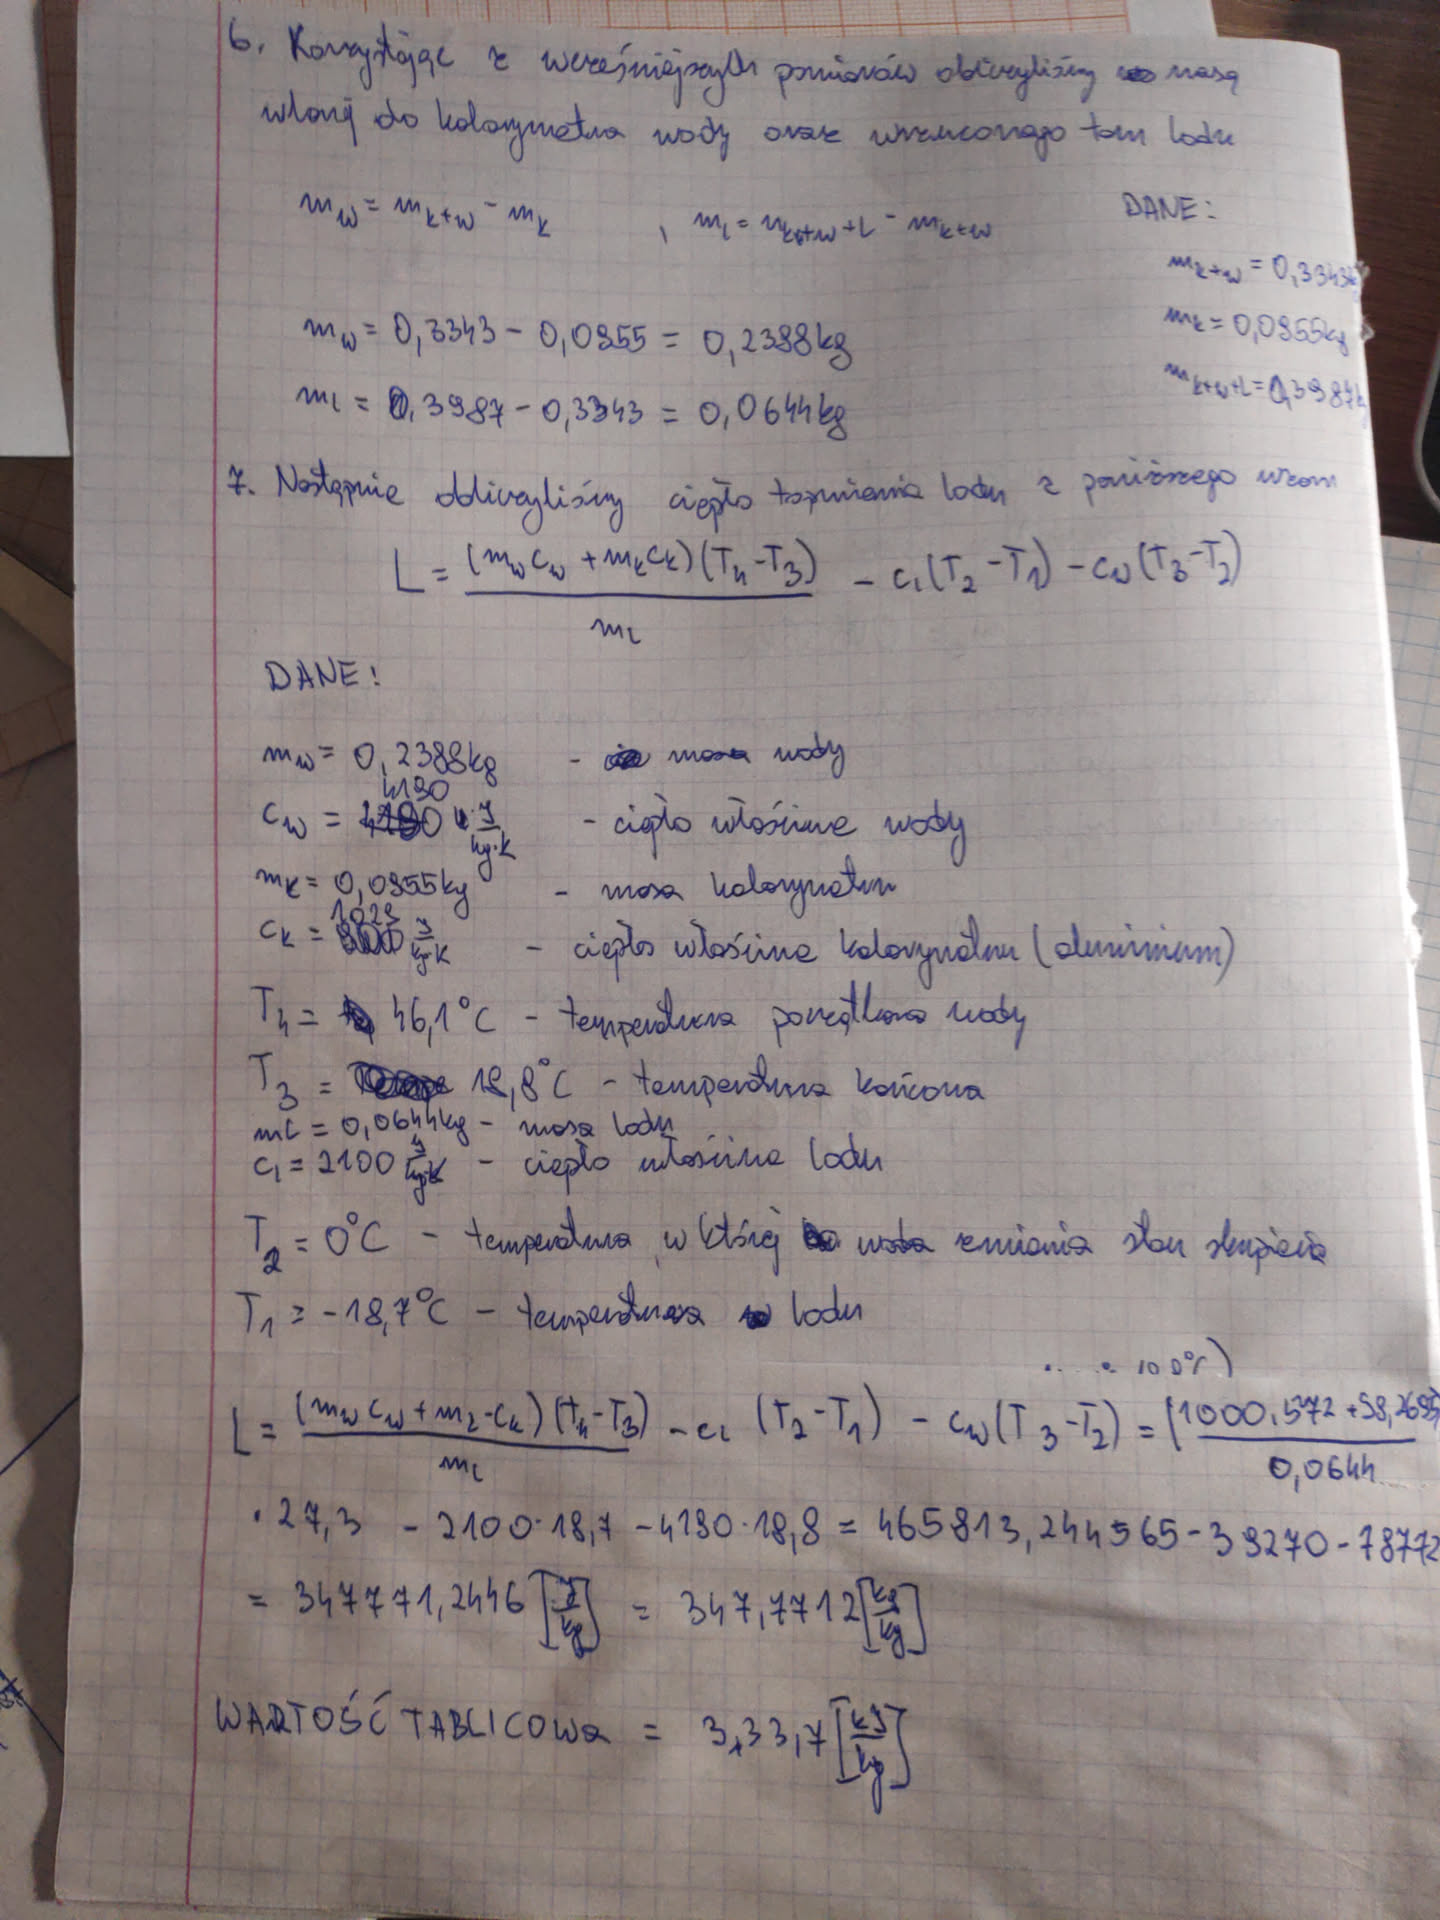 6. Korzystając z wcześniejszych pomiarów obliczyliśmy masę
wlanej do kalorymetra wody oraz wrzuconego tam lodu
m_w = m_{k+w} - m_k , m_l = m_{k+w+L} - m_{k+w}
DANE:
m_{k+w} = 0,3343k
m_k = 0,0955kg
m_{k+w+L} = 0,3987k
m_w = 0,3343 - 0,0955 = 0,2388kg
m_l = 0,3987 - 0,3343 = 0,0644kg
7. Następnie obliczyliśmy ciepło topnienia lodu z poniższego wzoru
L = \frac{(m_w c_w + m_k c_k)(T_4 - T_3)}{m_L} - c_l(T_2 - T_1) - c_w(T_3 - T_2)
DANE:
m_w = 0,2388kg - masa wody
c_w = 4190 \frac{J}{kg·K} - ciepło właściwe wody
m_k = 0,0955kg - masa kalorymetru
c_k = \frac{J}{kg·K} - ciepło właściwe kalorymetru (aluminium)
T_4 = 46,1°C - temperatura początkowa wody
T_3 = 18,8°C - temperatura końcowa
m_L = 0,0644kg - masa lodu
c_l = 2100 \frac{J}{kg·K} - ciepło właściwe lodu
T_2 = 0°C - temperatura, w której woda zmienia stan skupienia
T_1 = -18,7°C - temperatura lodu
100°C)
L = \frac{(m_w c_w + m_k · c_k)(T_4 - T_3)}{m_L} - c_l (T_2 - T_1) - c_w (T_3 - T_2) = \frac{(1000,572 + 98,2695}{0,0644}
· 27,3 - 2100·18,7 - 4190·18,8 = 465813,244565 - 39270 - 78772
= 347771,2446 [\frac{J}{kg}] = 347,7712 [\frac{kg}{kg}]
WARTOŚĆ TABLICOWA = 333,7 [\frac{kJ}{kg}]